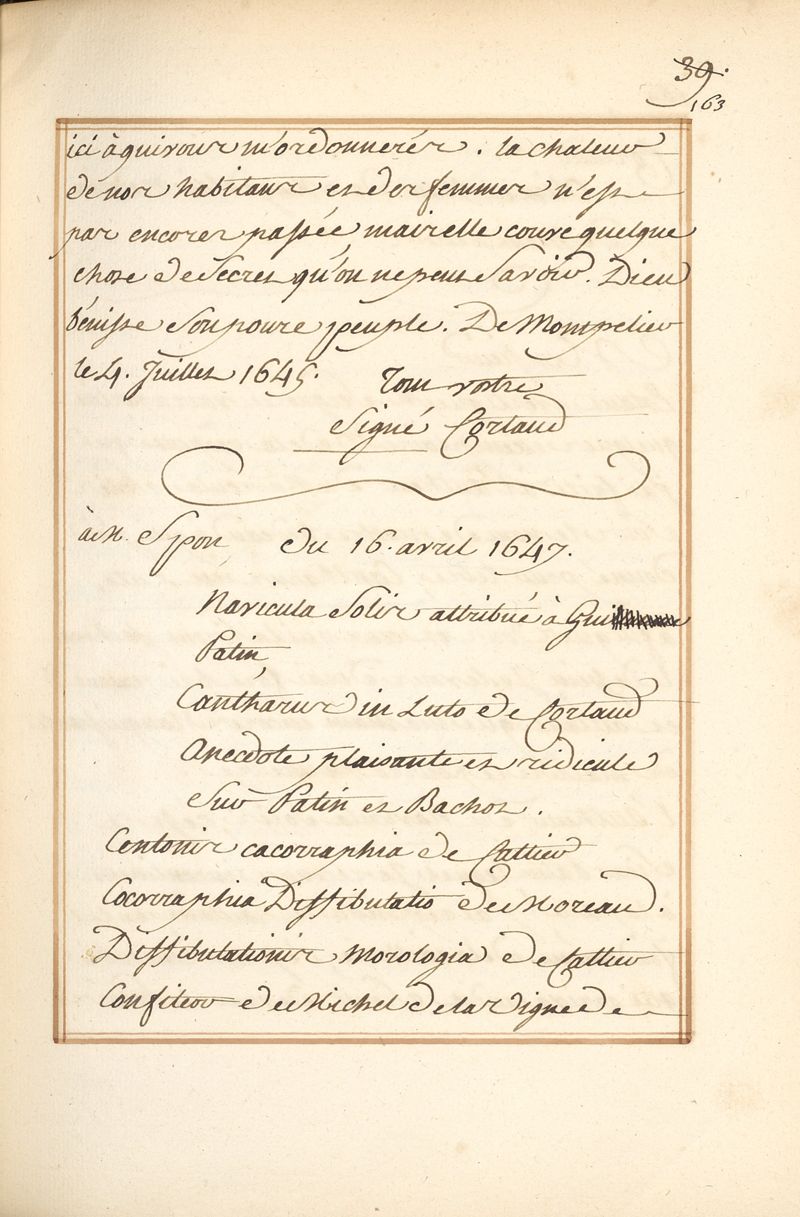 39.
163
ici à qui vous m'ordonnerés. la chaleur
de nos habitans et des femmes n'est
pas encores passée mais elle couve quelque
chose de secret qu'on ne peut savoir. Dieu
bénisse son povre peuple. De Montpelier
le 4. Juillet 1645. Tout vostre
Signé Cortaud
à M. Spon du 16. avril 1647.
Navicula Solis attribué à Gui
Patin,
Cantharus in Luto de Cortaud
Anecdote plaisante et ridicule
sur Patin et Bachot.
Centonis cacorraphia de Cattier
Cocorraphia Diffibulatio de Moreau.
Diffibulationis Morologia de Cattier
Confiteor de Michel de la Vigne de